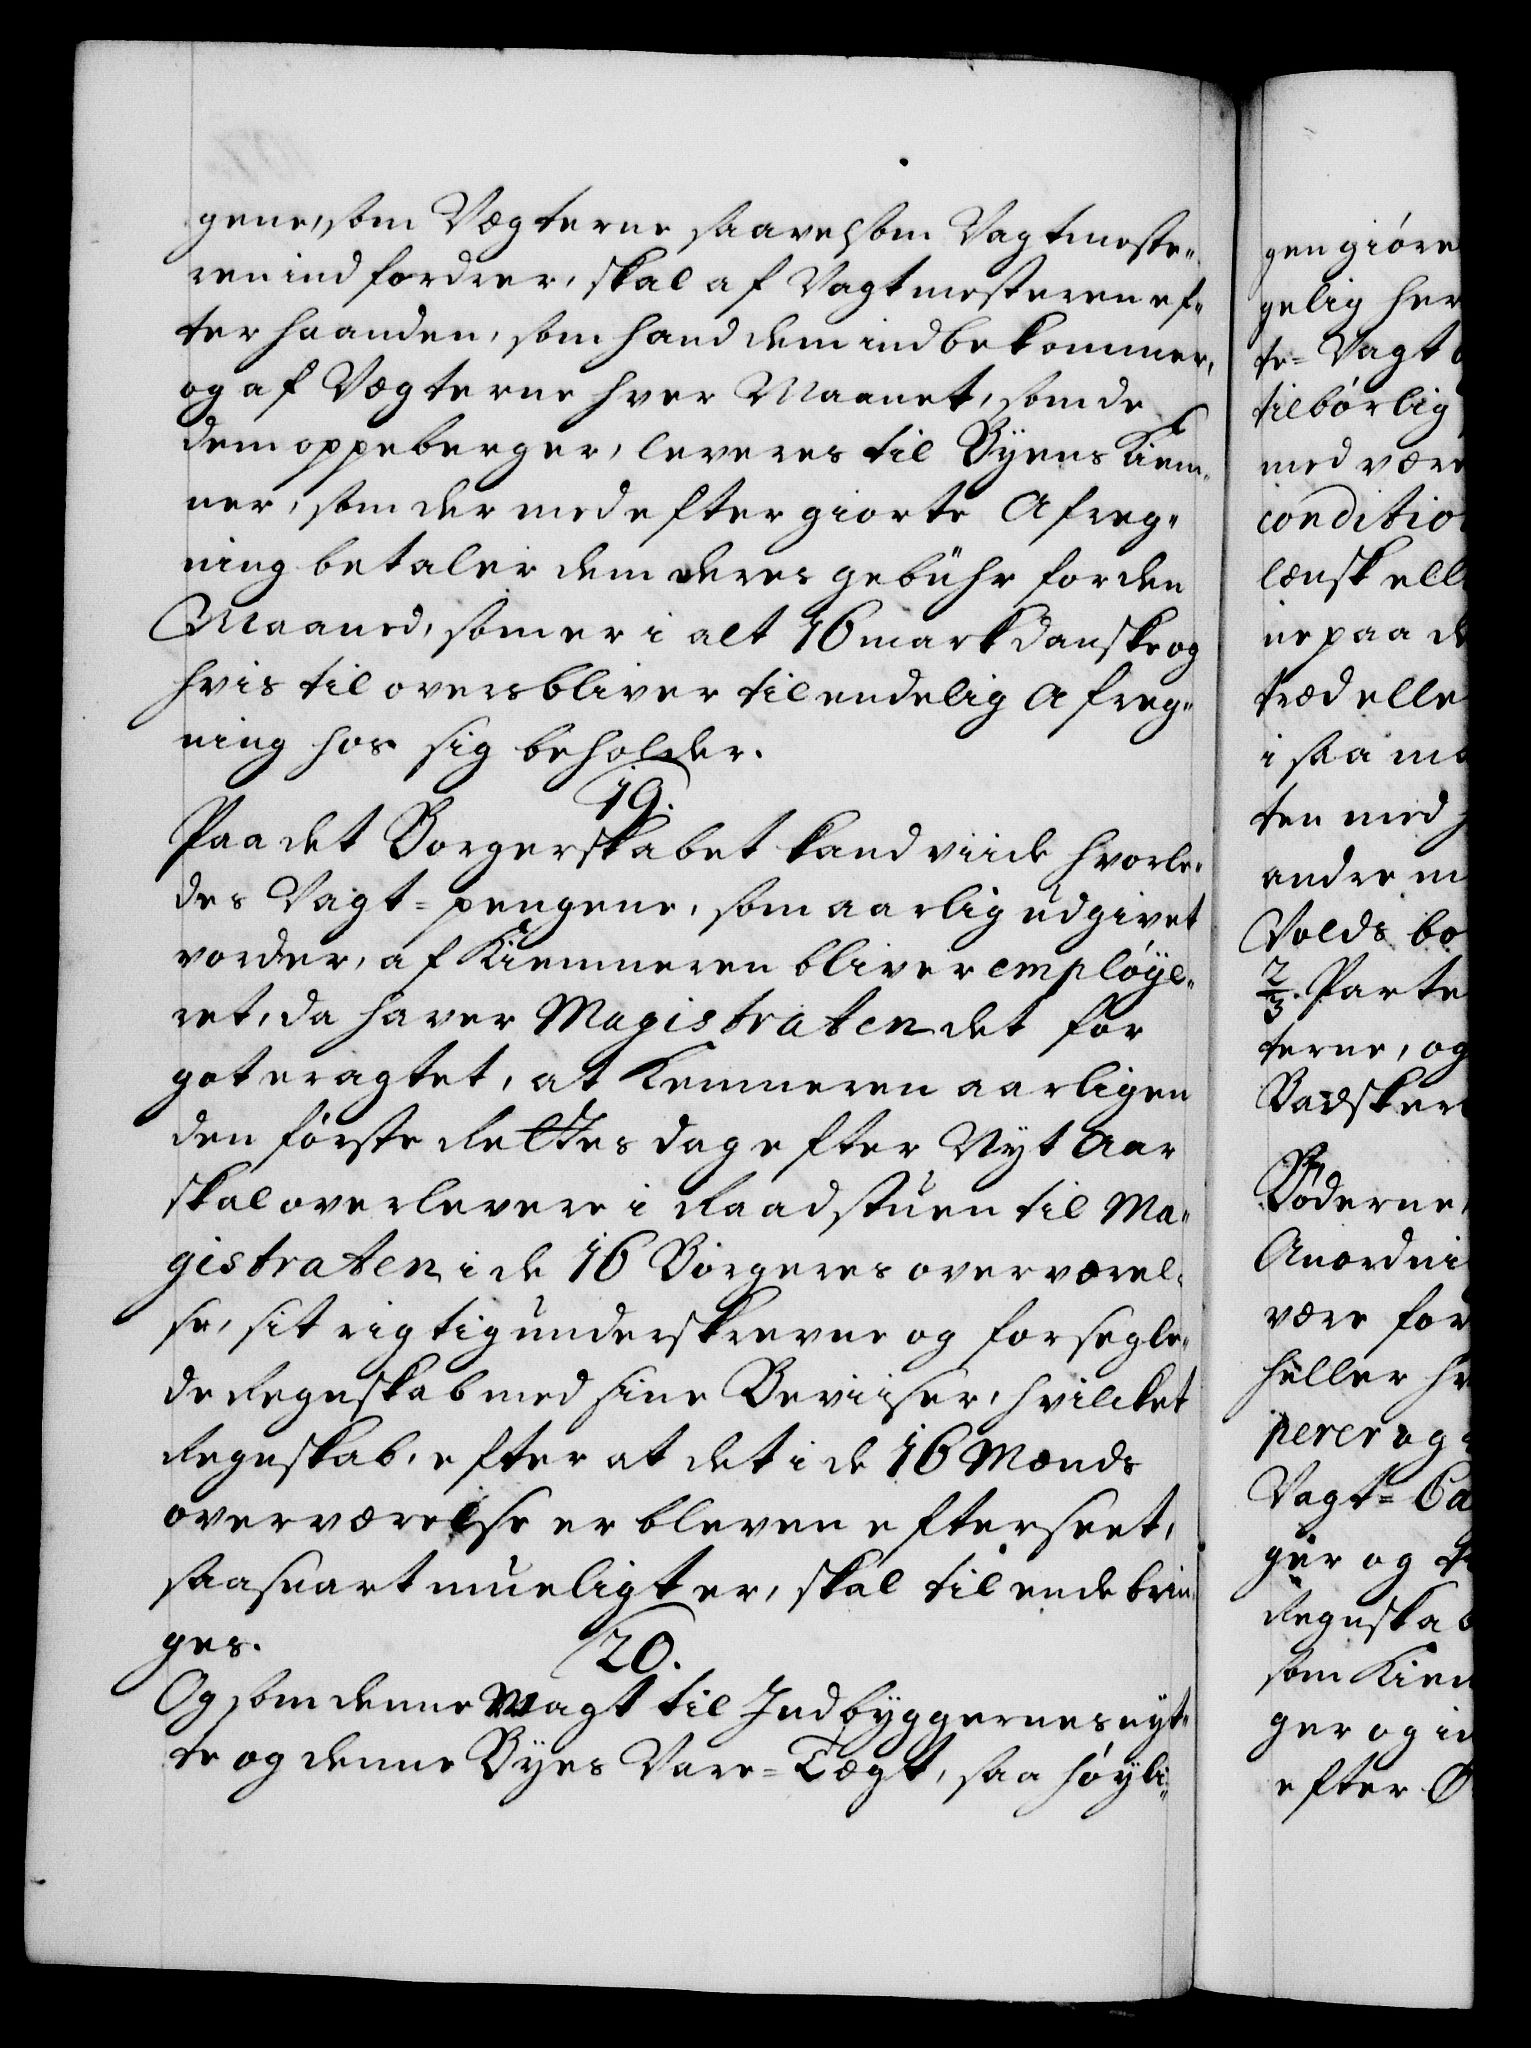 gene, som Vægterne saavelsom Vagtmeste-
ren indfordrer, skal af Vagtmesteren ef-
ter haanden, som hand dem indbekommer,
og af Vægterne hver Maanet, som de
dem oppeberger, leveres til Byens Kiem-
ner, som der med efter giorte Afreg-
ning betaler dem deres gebühr for den
Maaned, som er i alt 16 mark danske og
hvis til overs bliver til endelig Afreg-
ning hos sig beholder.
19.
Paa det Borgerskabet kand viide hvorle-
des Vagt-pengene, som aarlig udgivet
vorder, af Kiemneren bliver employe-
ret, da haver Magistraten det for
got eragtet, at Kemneren aarligen
den förste Rettes dag efter Nyt Aar
skal overlevere i Raadstuen til Ma-
gistraten i de 16 Borgeres overværel-
se, sit rigtig underskrevne og forsegle-
de Regnskab med sine Beviiser, hvilcket
Regnskab, efter at det i de 16 Mænds
overværelse er bleven efterseet,
saasnart mueligt er, skal til ende brin-
ges.
20.
Og som denne Vagt til Indbyggernes nyt-
te og denne Byes Vare-Tægt, saa höyli-
gen giöre
gelig her
te-Vagt
tilbörlig
med være
conditio
lænsk ell
ne paa de
træd elle
i saa ma
ten med
andre m
Volds bo
2/3. Parte
terne, og
Badsker
Böderne,
Anordni
være for
heller h
perer og
Vagt-Ca
ger og
Regnskab
som Kiem
ger og in
efter